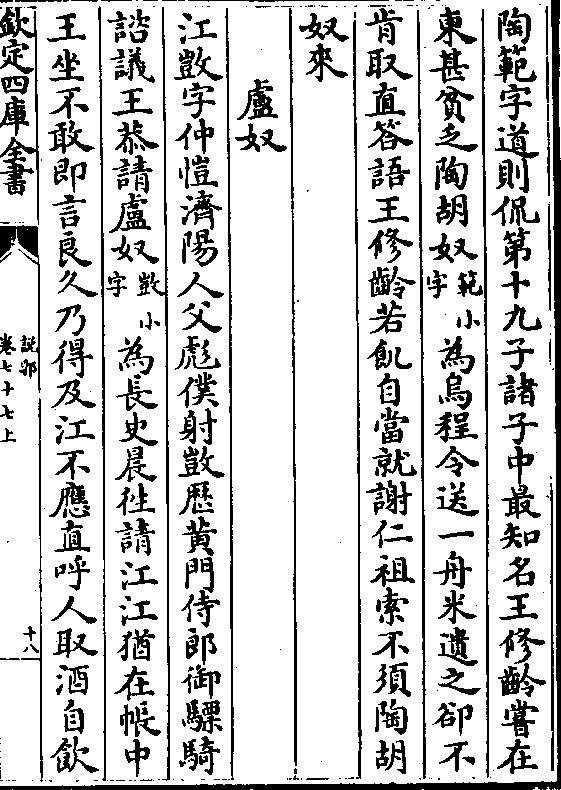 陶範字道則侃第十九子諸子中最知名王修齡嘗在
東甚貧乏陶胡奴範小字為烏程令送一舟米遺之卻不
肯取直答語王修齡若飢自當就謝仁祖索不須陶胡
奴來
盧奴
江敳字仲愷濟陽人父彪僕射敳歷黃門侍郎御驃騎
諮議王恭請盧奴敳小字為長史晨徃請江江猶在帳中
王坐不敢即言良久乃得及江不應直呼人取酒自飲
欽定四庫全書
說郛
卷七十七上
十八